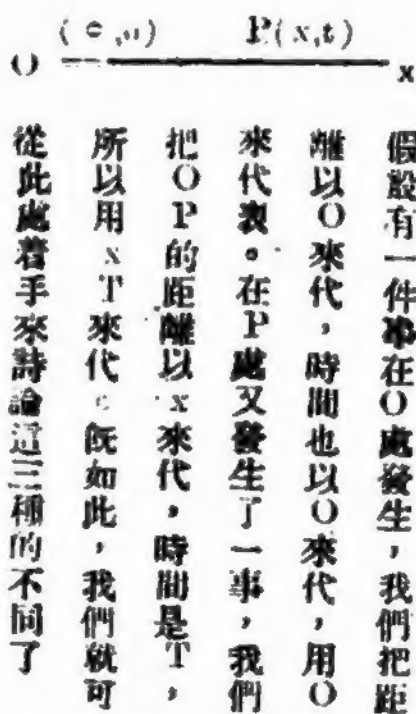 (o,o) P(x,t)
O x
假設有一件事在O處發生，我們把距
離以O來代，時間也以O來代，用O
來代表。在P處又發生了一事，我們
把OP的距離以x來代，時間是T，
所以用xT來代。旣如此，我們就可
從此處着手來討論這三種的不同了